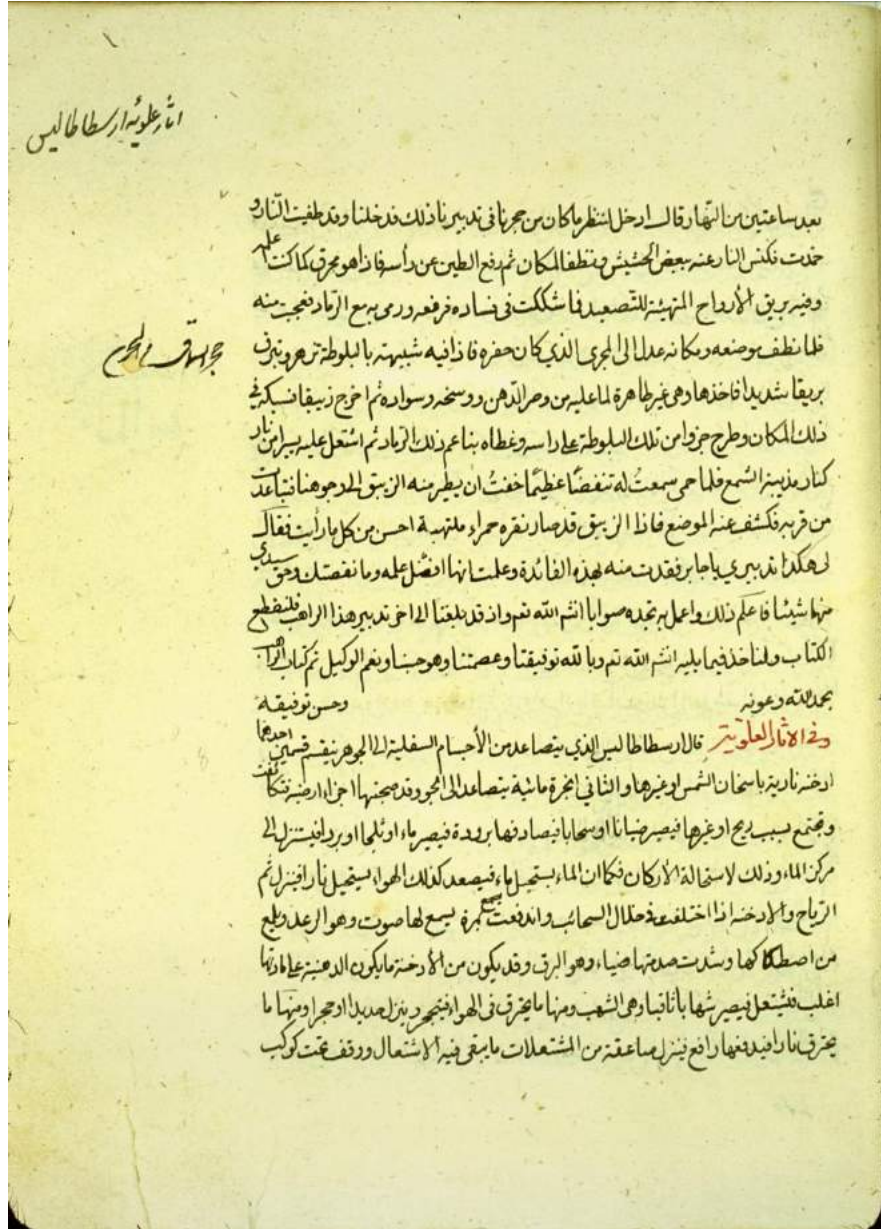 اثار علويه ارسطاطاليس
بعد ساعتين من النهار وقال ادخل لننظر ما كان من حجرنا فى تدبيرنا ذلك فدخلنا وقد طفيت النار و
خمدت فكنس النار عنه ببعض الحشيش ونظف المكان ثم رفع الطين عن رأسه فاذا هو محرق كما كنت
وفيه بريق الأرواح المتهيئة للتصعيد فما شككت فى فساده فرفعه ورمى به مع الرماد فعجبت منه
فلما نظف موضعه ومكانه عدل الى المجرى الذي كان حفره فاذا فيه شبيهته بالبلوطة تزهر وتبرق
بريقا شديدا فاخذها وهى غير ظاهرة لما عليه من وضر الدهن ووسخه وسواده ثم اخرج زيبقا فسبكه فى
ذلك المكان وطرح جزوا من تلك البلوطة على راسه وغطاه بناعم ذلك الرماد ثم اشتعل عليه يسيرا من نار
كنار مذيبة الشمع فلما حمى سمعت له تنفضا عظيما خفت ان يطير منه الزيبق الى وجوهنا فتباعدت
من قربه فكشف عنه الموضع فاذا الزيبق قد صار نقره حمراء ملتهبة احسن من كل ما رأيت فقال
لى هكذا تدبيري يا جابر فقدت منه لهذه الفائدة وعلمت انها افضل علمه وما نقصتك وحق سيدي
منها شيئا فاعلم ذلك واعمل به تجده صوابا انشم الله تعم واذ قد بلغنا الى اخر تدبير هذا الراهب فلنقطع
الكتاب ولناخذ فيما يليه انشم الله تعم وبالله توفيقنا وعصمتنا وهو حسبنا ونعم الوكيل تم كتاب الراهب
بحمد الله وعونه وحسن توفيقه
وفى الاثار العلوية قال ارسطاطاليس الذي يتصاعد من الأجسام السفلية الى الجوهر ينقسم قسمين احدهما
ادخنة نارية باسخان الشمس او غيرها والثانى ابخرة مائية يتصاعد الى الجو وقد صحبتها اجزاء ارضية فتكاثفت
وتجتمع بسبب ريح او غيرها فيصير ضبانا او سحابا فيصادفها برودة فيصير ماء او ثلجا او بردا فيتنزل الى
مركز الماء وذلك لاستحالة الأركان فكما ان الماء يستحيل ماء فيصعد كذلك الهواء يستحيل نارا فينزل ثم
الرياح والادخنة اذا اختلفت فى خلال السحائب واندفعت بمرة يسمع لها صوت وهو الرعد ويلمع
من اصطكاكها وشدت صدمتها ضياء وهو البرق وقد يكون من الأدخنة ما يكون الدهنية على مادتها
اغلب فيشتعل فيصير شهابا ثاقبا وهى الشهب ومنها ما يحترق فى الهواء فيتحجر وينزل حديدا او حجرا ومنها ما
يحترق نارا فيدفعها رافع فينزل صاعقة من المشتعلات ما يبقى فيه الاشتعال ووقف تحت كوكب